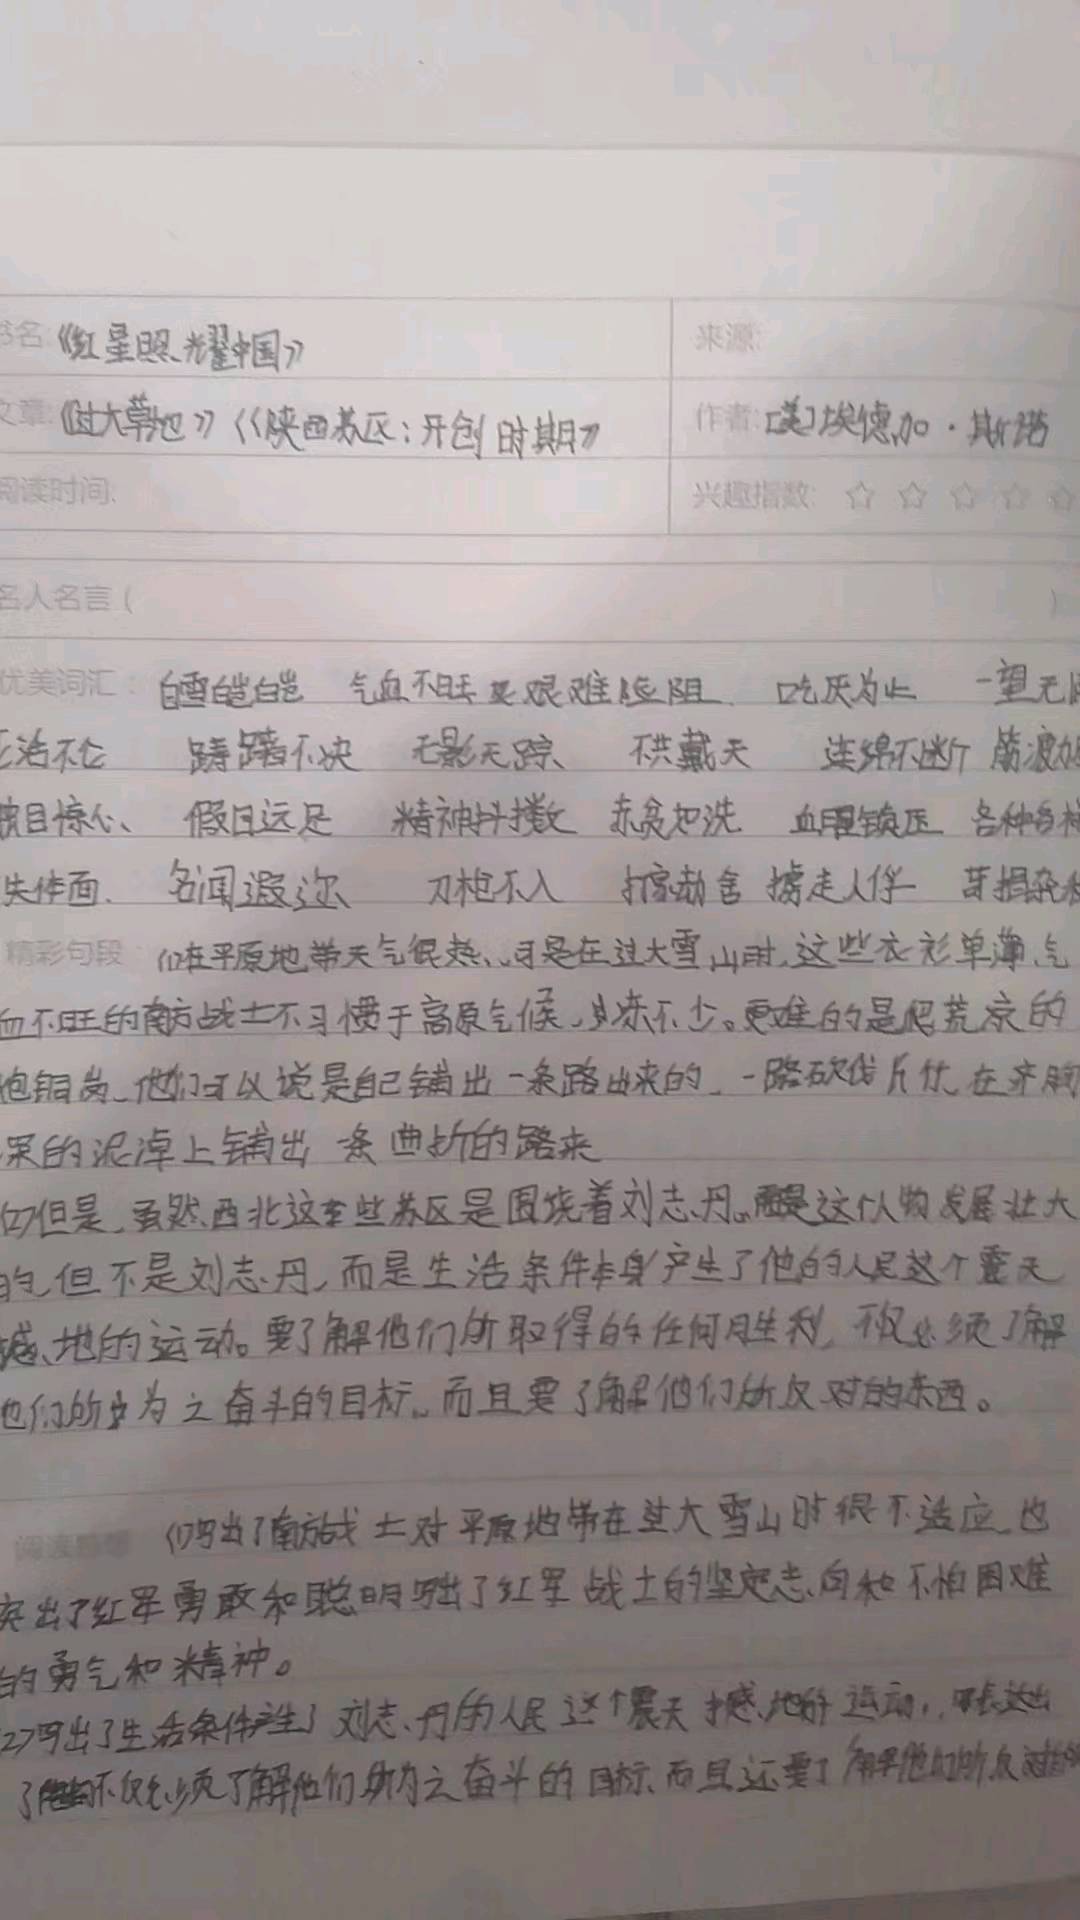 书名:《红星照耀中国》 来源:
文章:《过大草地》《陕西苏区:开创时期》 作者:[美]埃德加·斯诺
阅读时间: 兴趣指数: ☆ ☆ ☆ ☆ ☆
名人名言( )
优美词汇: 白雪皑皑 气血不旺 艰难险阻 吃灰为止 一望无
不伦 踌躇不决 无影无踪 不共戴天 连绵不断
触目惊心 假日远足 精神抖擞 赤贫如洗 血腥镇压 各种各样
失体面 名闻遐迩 刀枪不入 打家劫舍 掳走人伴 苛捐杂税
精彩句段 (1)在平原地带天气很热、可是在过大雪山时,这些衣衫单薄,气
血不旺的南方战士不习惯于高原气候,身冻不少。更难的是爬荒凉的
炮铜岗、他们可以说是自己铺出一条路出来的,一路砍伐斤竹,在齐胸
深的泥淖上铺出一条曲折的路来
(2)但是,虽然西北这些苏区是围绕着刘志丹这个人物发展壮大
的,但不是刘志丹,而是生活条件本身产生了他的人民这个震天
撼地的运动。要了解他们所取得的任何胜利,不仅必须了解
他们所为之奋斗的目标,而且要了解他们所反对的东西。
阅读感想 (1)写出了南方战士对平原地带在过大雪山时很不适应,也
突出了红军勇敢和聪明写出了红军战士的坚定志向和不怕困难
的勇气和精神。
(2)写出了生活条件产生了刘志丹的人民这个震天撼地的运动,表达出
了不仅必须了解他们所为之奋斗的目标,而且还要了解他们所反对的